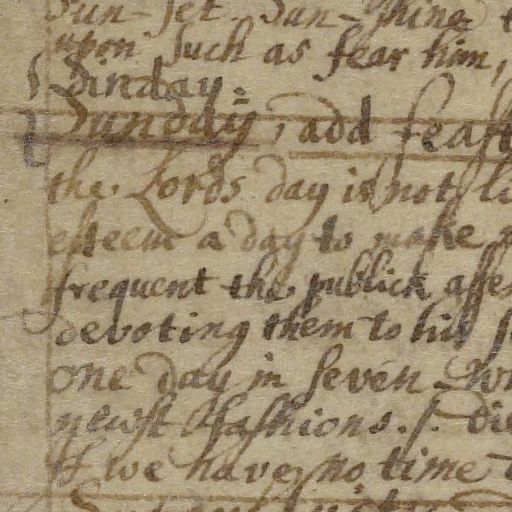 Sun-set. Sun-shine
upon such as fear him,
Sinday.
Sunday, add feast
the Lords day is not
esteem a day to make
frequent the publick asse
devoting them to his s
one day in seven
newst ffashions. S. die
If we have no time